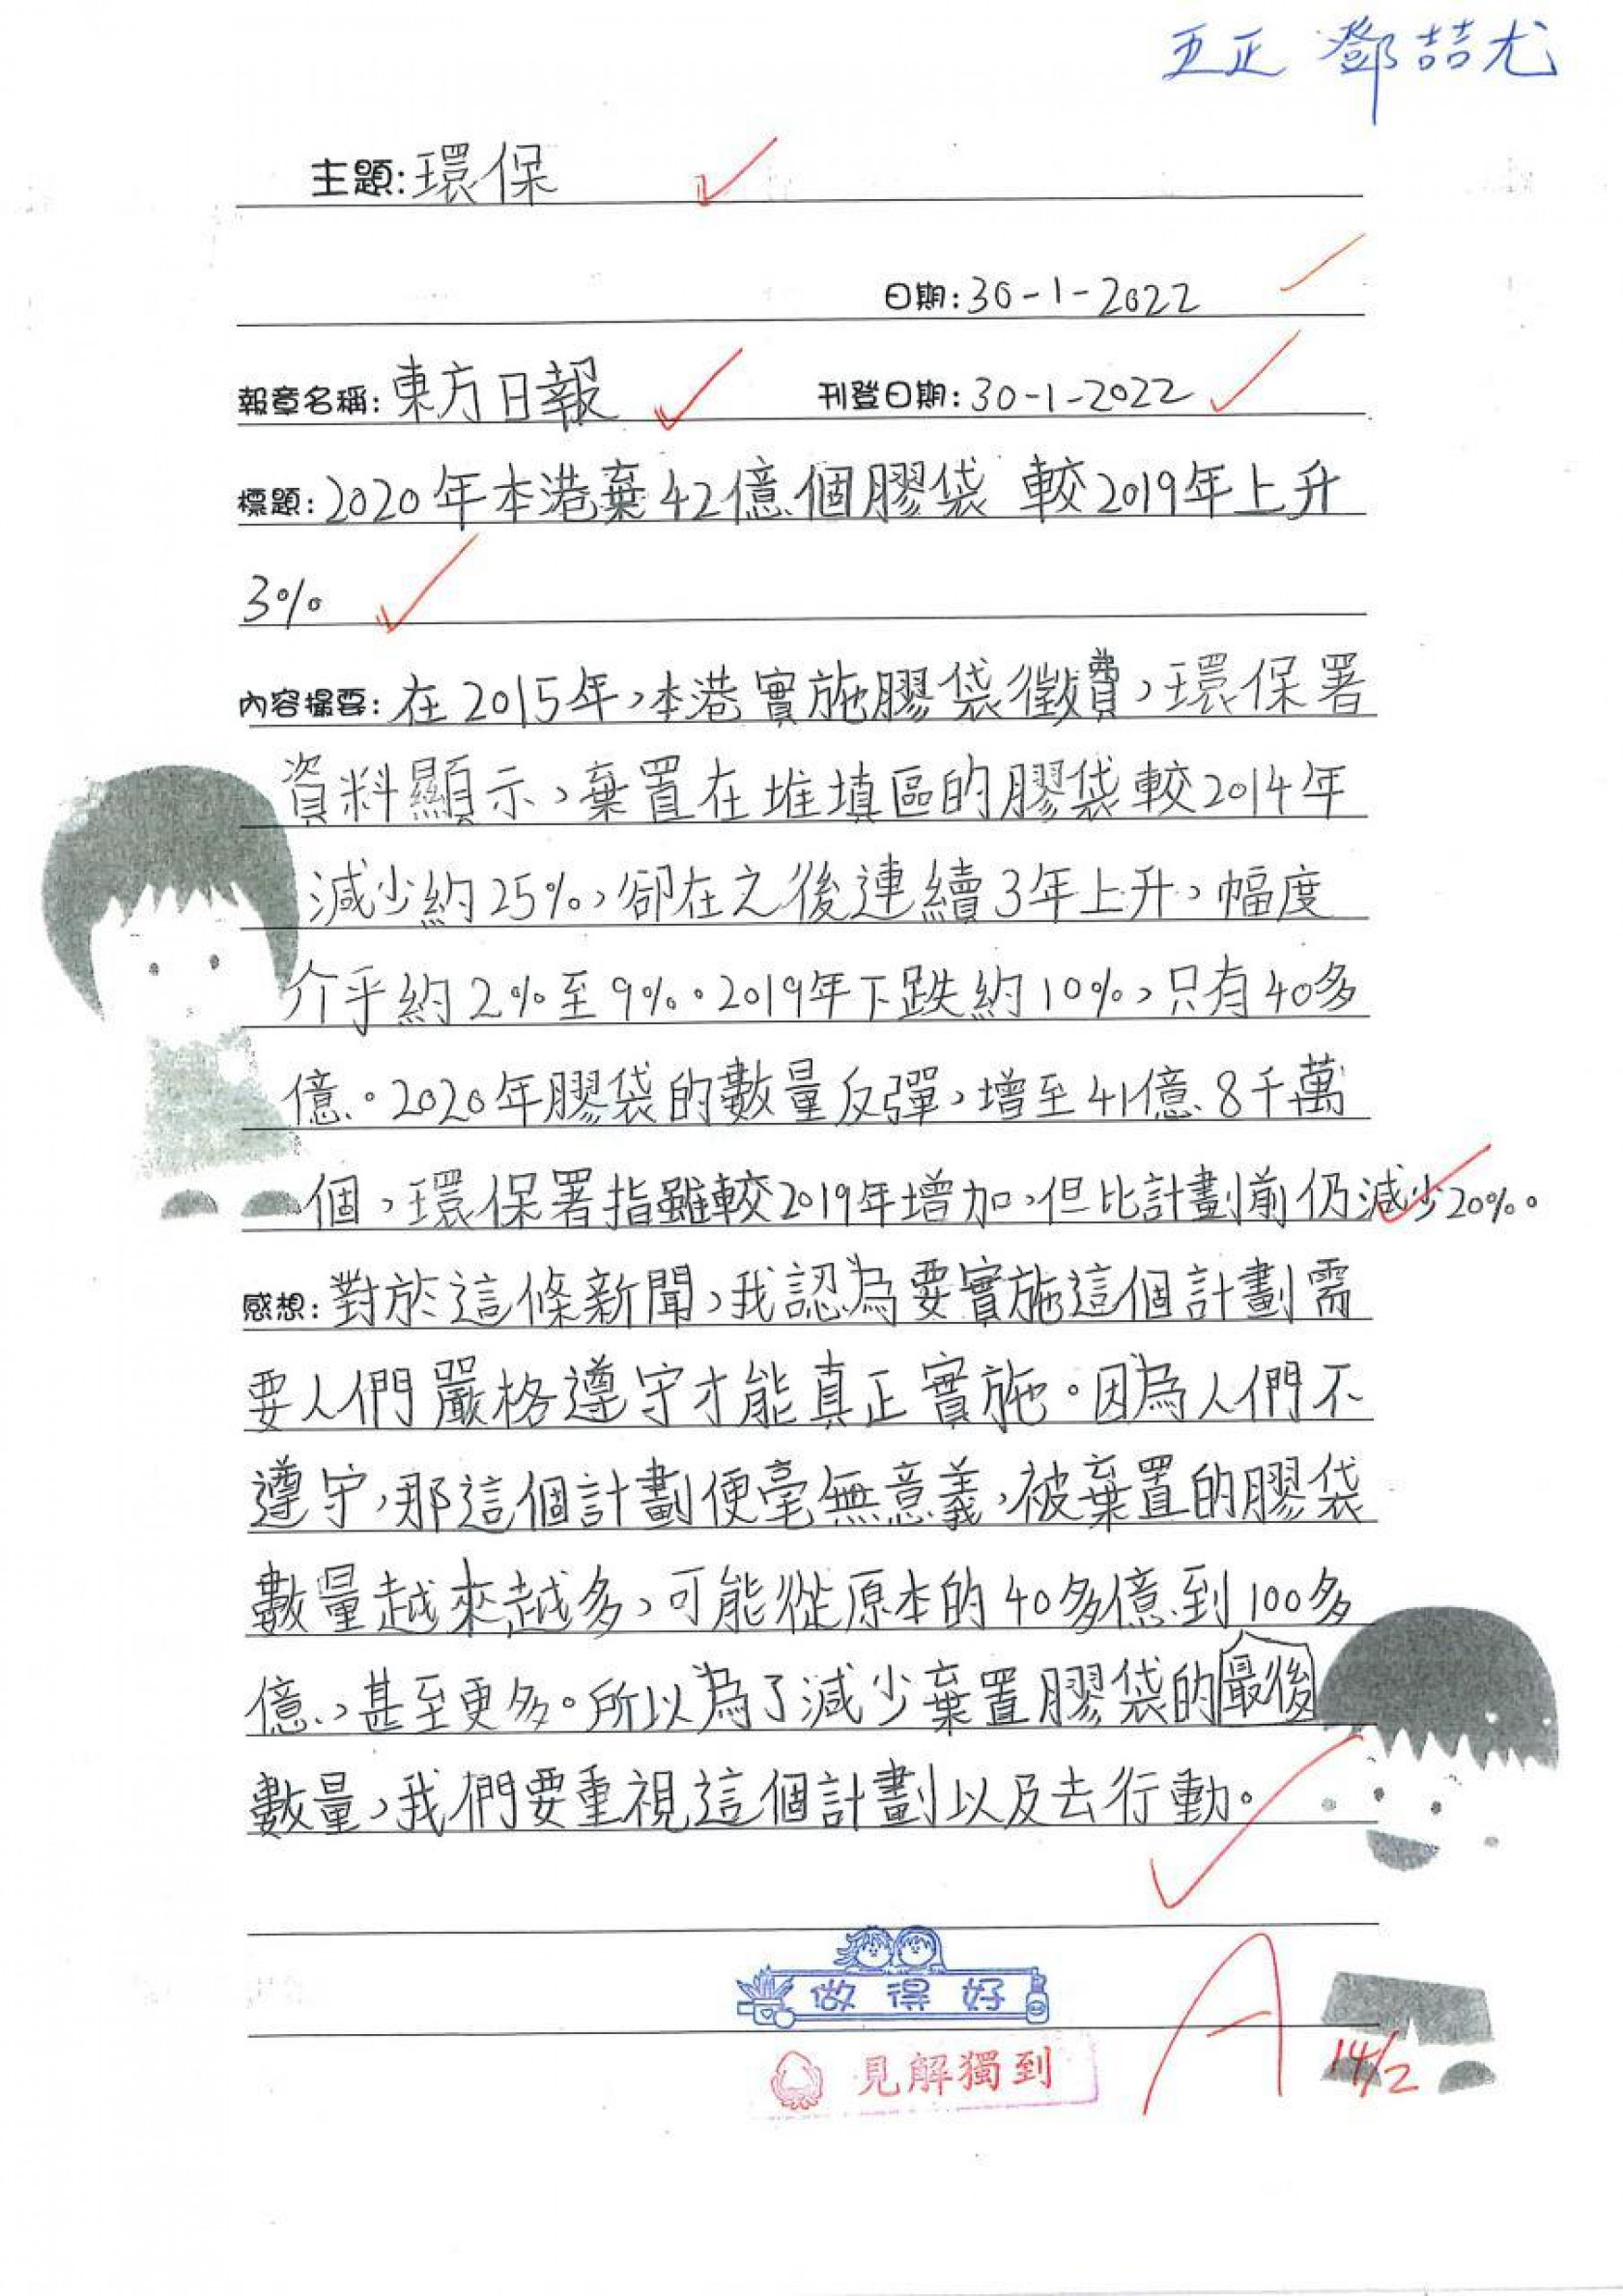 五正 鄧喆尤
主題:環保
日期:30-1-2022
報章名稱:東方日報 刊登日期:30-1-2022
標題:2020年本港棄42億個膠袋 較2019年上升
3%
內容撮要:在2015年,本港實施膠袋徵費,環保署
資料顯示,棄置在堆填區的膠袋較2014年
減少約25%,卻在之後連續3年上升,幅度
介乎約2%至9%。2019年下跌約10%,只有40多
億。2020年膠袋的數量反彈,增至41億8千萬
個,環保署指雖較2019年增加,但比計劃前仍減少20%。
感想:對於這條新聞,我認為要實施這個計劃需
要人們嚴格遵守才能真正實施。因為人們不
遵守,那這個計劃便毫無意義,被棄置的膠袋
數量越來越多,可能從原本的40多億到100多
億,甚至更多。所以為了減少棄置膠袋的最後
數量,我們要重視這個計劃以及去行動。
做得好
見解獨到
A
14/2